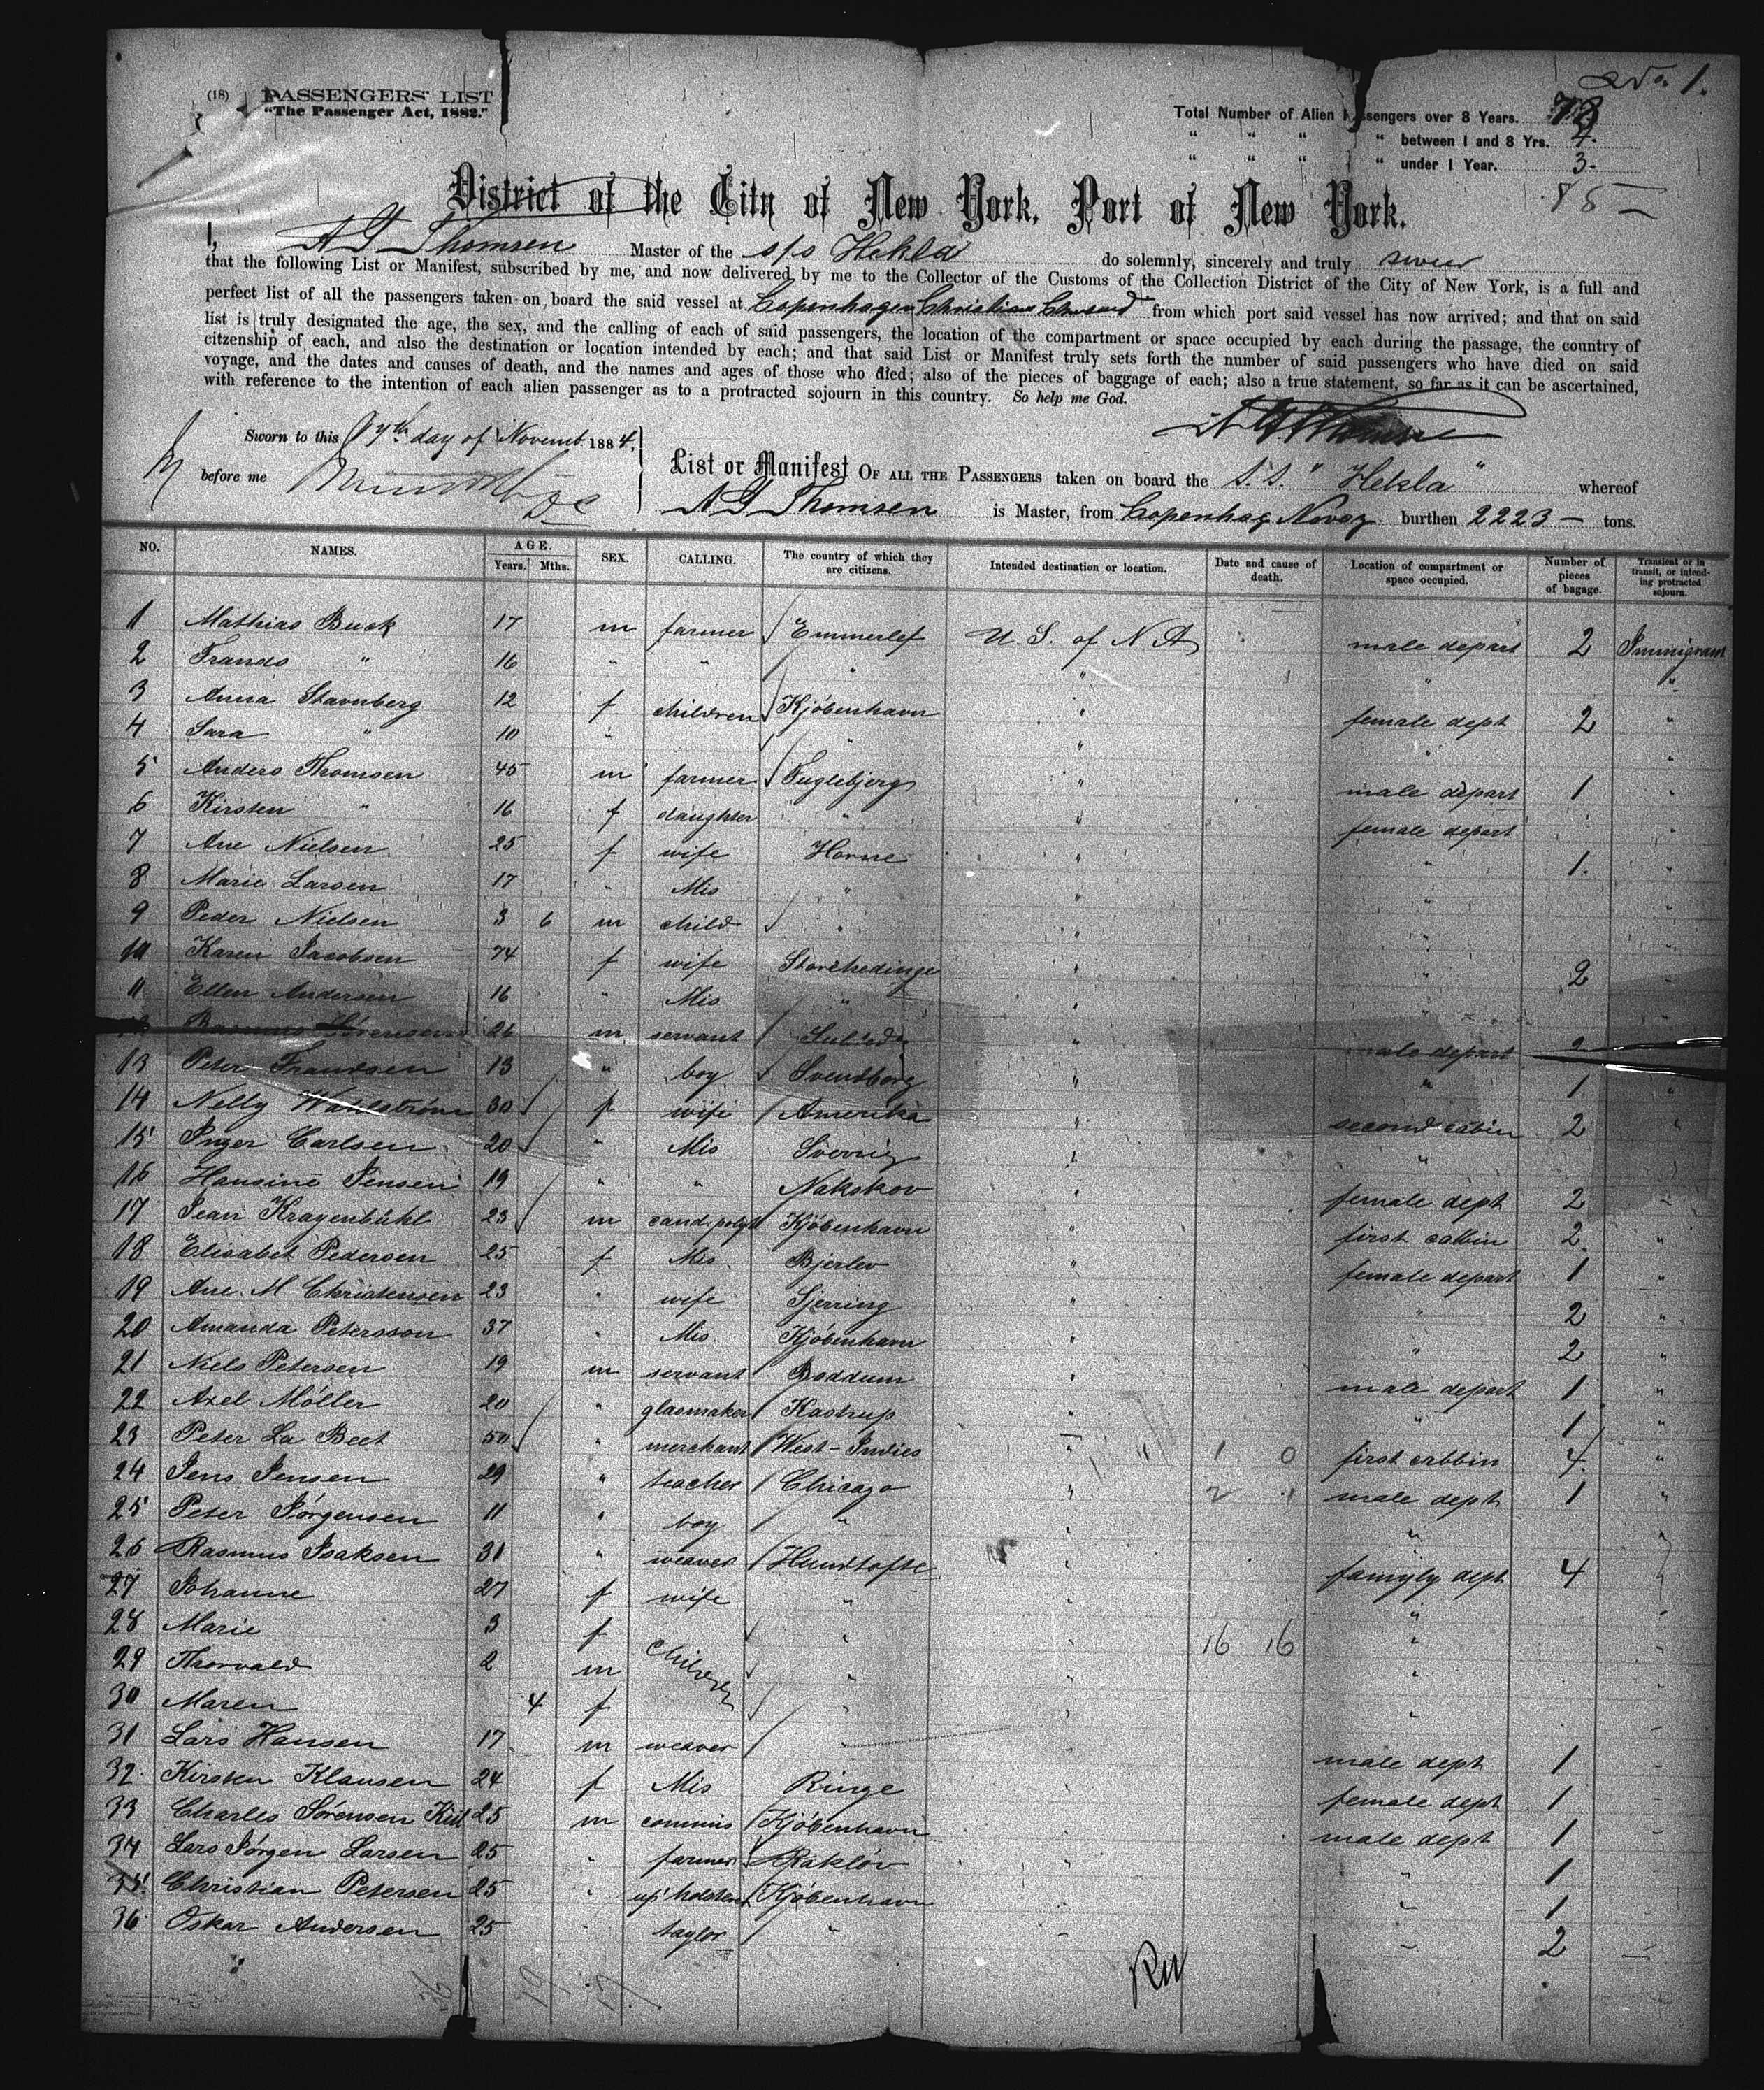 No. 1.
(18) PASSENGERS' LIST
"The Passenger Act, 1882."
Total Number of Alien Passengers over 8 Years. 78
" " " " between 1 and 8 Yrs. 4.
" " " " under 1 Year. 3.
85
District of the City of New York, Port of New York.
I, A G Thomsen Master of the s/s Hekla do solemnly, sincerely and truly swear
that the following List or Manifest, subscribed by me, and now delivered by me to the Collector of the Customs of the Collection District of the City of New York, is a full and
perfect list of all the passengers taken on board the said vessel at Copenhagen Christian from which port said vessel has now arrived; and that on said
list is truly designated the age, the sex, and the calling of each of said passengers, the location of the compartment or space occupied by each during the passage, the country of
citzenship of each, and also the destination or location intended by each; and that said List or Manifest truly sets forth the number of said passengers who have died on said
voyage, and the dates and causes of death, and the names and ages of those who died; also of the pieces of baggage of each; also a true statement, so far as it can be ascertained,
with reference to the intention of each alien passenger as to a protracted sojourn in this country. So help me God.
A G Thomsen
Sworn to this day of Novemb. 1884,
before me
List or Manifest OF ALL THE PASSENGERS taken on board the S.S. "Hekla" whereof
A G Thomsen is Master, from Copenhag burthen 2223 — tons.
NO. NAMES. AGE. Years. Mths. SEX. CALLING. The country of which they are citizens. Intended destination or location. Date and cause of death. Location of compartment or space occupied. Number of pieces of bagage. Transient or in transit, or intending protracted sojourn.
1 Mathias Buck 17 m farmer Emmerlef U. S. of N A male depart 2 Immigrant
2 Frands " 16 " " " " " "
3 Anna Stavnberg 12 f children Kjöbenhavn " female dept 2 "
4 Sara " 10 " " " " "
5 Anders Thomsen 45 m farmer Fuglebjerg " male depart 1 "
6 Kirsten " 16 f daughter " " female depart "
7 Ane Nielsen 25 f wife Horne " " 1. "
8 Marie Larsen 17 " Mis " " " "
9 Peder Nielsen 3 6 m child " " " "
10 Karen Jacobsen 74 f wife Storehedinge " " 2 "
11 Ellen Andersen 16 " Mis " " " "
12 Rasmus 26 m servant " male depart 2
13 Peter Frandsen 13 " boy Svendborg " " 1. "
14 Nelly Wahlström 30 f wife Amerika " second cabin 2 "
15 Inger Carlsen 20 " Mis Sverrig " "
16 Hansine Jensen 19 " " Nakskov " female dept 2 "
17 Jean Kragenbühl 23 m cand. polyt Kjöbenhavn " first cabbin 2. "
18 Elisabet Pedersen 25 f Mis Bjerlev " female depart 1 "
19 Ane M Christensen 23 " wife Sjerring " " 2 "
20 Amanda Petersson 37 " Mis Kjöbenhavn " " 2 "
21 Niels Petersen 19 m servant Boddum " male depart 1 "
22 Axel Möller 20 " glasmaker Kastrup " " 1 "
23 Peter La Beet 50 " merchant West-Indies " 1 0 first cabbin 4. "
24 Jens Jensen 29 " teacher Chicago " 2 1 male dept 1 "
25 Peter Jörgensen 11 " boy " " " "
26 Rasmus Isaksen 31 " weaver Hundtofte " famyly dept 4
27 Johanne 27 f wife " " "
28 Marie 3 f " " 16 16 "
29 Thorvald 2 m children " " "
30 Maren 4 f " " "
31 Lars Hansen 17 m weaver " " male dept 1 "
32 Kirsten Klausen 24 f Mis Ringe " female dept 1 "
33 Charles Sörensen 25 m commis Kjöbenhavn " male dept 1 "
34 Lars Jörgen Larsen 25 " farmer Raklöv " " 1
35 Christian Petersen 25 " upholsterer Kjöbenhavn " 1
36 Oskar Andersen 25 " taylor " " " 2 "
36 19 17